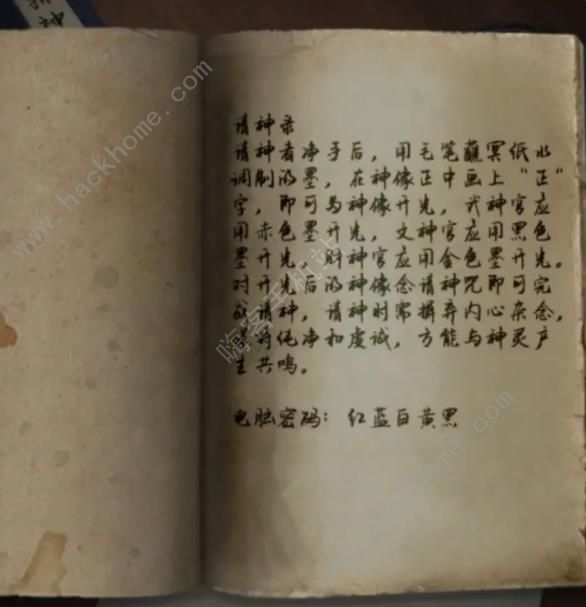 请神
请神录
请神者净手后，用毛笔蘸冥纸水
调制的墨，在神像正中画上“正”
字，即可为神像开光，武神官应
用赤色墨开光，文神官应用黑色
墨开光，财神官应用金色墨开光。
对开光后的神像念请神咒即可完
成请神，请神时需摒弃内心杂念，
保持纯净和虔诚，方能与神灵产
生共鸣。
电脑密码：红蓝白黄黑
www.hackhome.com
嗨客手机站
www.hackhome.com
www.hackhome.com